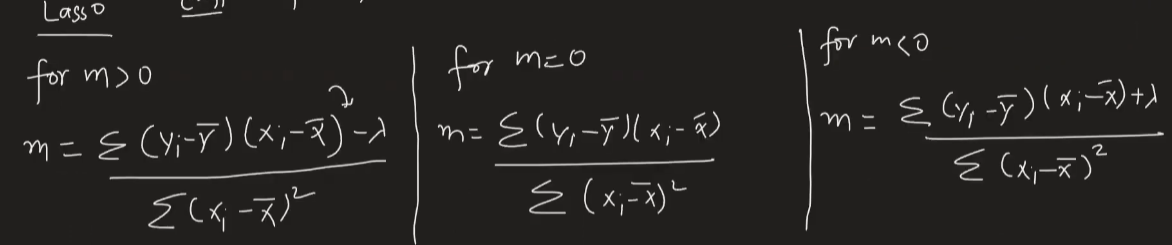 Lasso
for m>0
m = Σ (yᵢ-ȳ) (xᵢ-x̄) -λ / Σ(xᵢ-x̄)²
for m=0
m= Σ(yᵢ-ȳ)(xᵢ-x̄) / Σ (xᵢ-x̄)²
for m<0
m = Σ (yᵢ-ȳ)(xᵢ-x̄)+λ / Σ (xᵢ-x̄)²